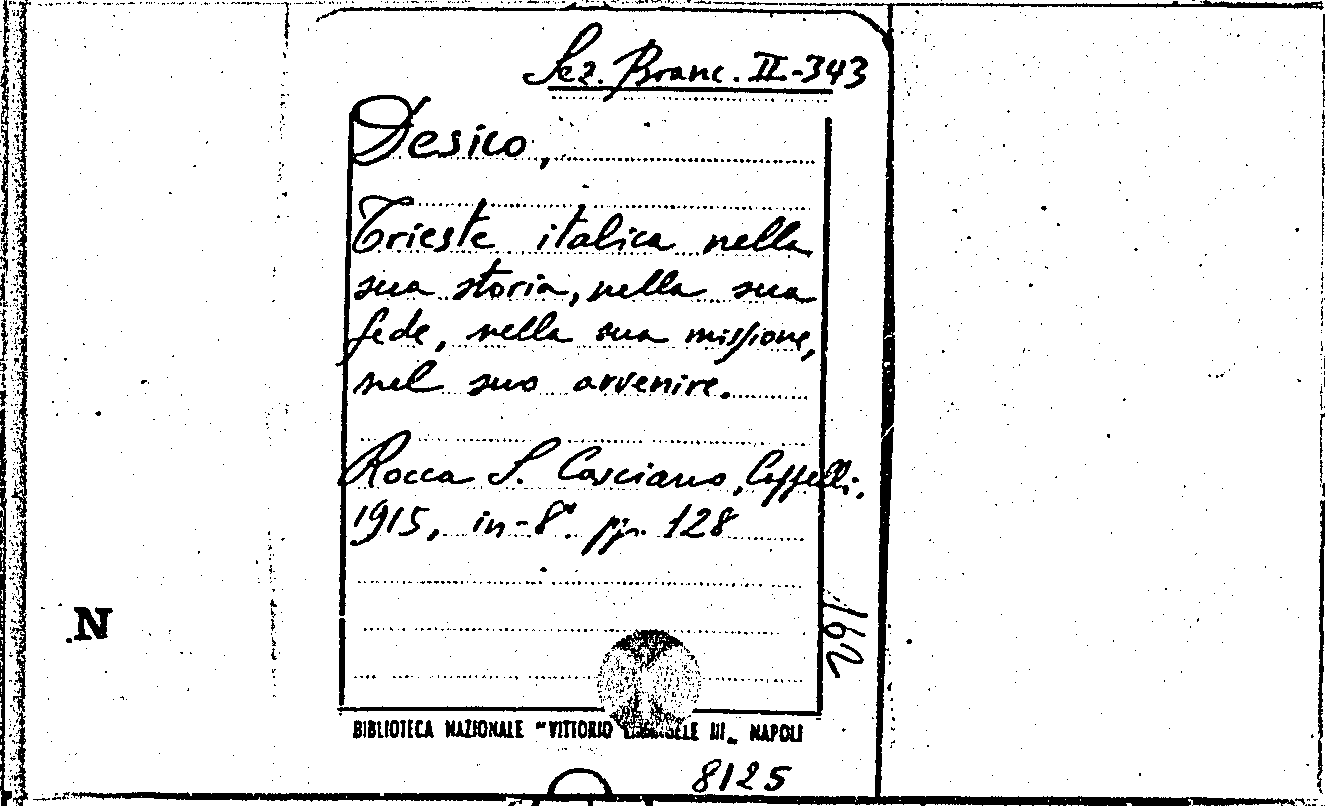 Sez. Branc. II-343
Desico,
Trieste italica nella
sua storia, nella sua
fede, nella sua missione,
nel suo avvenire.
Rocca S. Casciano, Cappelli,
1915, in-8° pp. 128
162
N
BIBLIOTECA NAZIONALE "VITTORIO EMANUELE III„ NAPOLI
8125